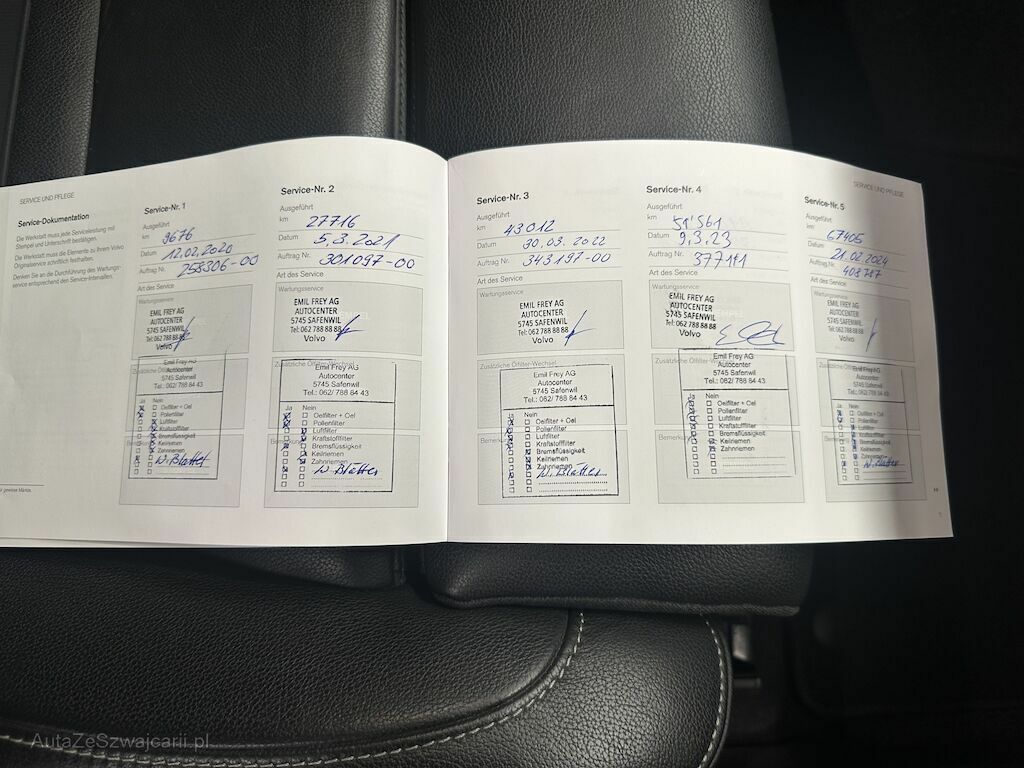 SERVICE UND PFLEGE
Service-Dokumentation
Die Werkstatt muss jede Serviceleistung mit
Stempel und Unterschrift bestätigen.
Die Werkstatt muss die Elemente zu Ihrem Volvo
Originalservice schriftlich festhalten.
Denken Sie an die Durchführung des Wartungs-
service entsprechend den Service-Intervallen.
Service-Nr. 1
Ausgeführt
km 9676
Datum 12.02.2020
Auftrag Nr. 258306-00
Art des Service
Wartungsservice
EMIL FREY AG
AUTOCENTER
5745 SAFENWIL
Tel: 062 788 88 88
Volvo
Emil Frey AG
Autocenter
5745 Safenwil
Tel.: 062/ 788 84 43
Ja Nein
Oelfilter + Oel
Pollenfilter
Luftfilter
Kraftstofffilter
Bremsflüssigkeit
Keilriemen
Zahnriemen
W. Blätter
Service-Nr. 2
Ausgeführt
km 27716
Datum 5.3.2021
Auftrag Nr. 301097-00
Art des Service
Wartungsservice
EMIL FREY AG
AUTOCENTER
5745 SAFENWIL
Tel: 062 788 88 88
Volvo
Zusätzliche Ölfilter-Wechsel
Emil Frey AG
Autocenter
5745 Safenwil
Tel.: 062/ 788 84 43
Ja Nein
Oelfilter + Oel
Pollenfilter
Luftfilter
Kraftstofffilter
Bremsflüssigkeit
Keilriemen
Zahnriemen
W. Blätter
Service-Nr. 3
Ausgeführt
km 43012
Datum 30.03.2022
Auftrag Nr. 343197-00
Art des Service
Wartungsservice
EMIL FREY AG
AUTOCENTER
5745 SAFENWIL
Tel: 062 788 88 88
Volvo
Emil Frey AG
Autocenter
5745 Safenwil
Tel.: 062/ 788 84 43
Ja Nein
Oelfilter + Oel
Pollenfilter
Luftfilter
Kraftstofffilter
Bremsflüssigkeit
Keilriemen
Zahnriemen
W. Blätter
SERVICE UND PFLEGE
Service-Nr. 4
Ausgeführt
km
Datum 9.3.23
Auftrag Nr.
Art des Service
Wartungsservice
EMIL FREY AG
AUTOCENTER
5745 SAFENWIL
Tel: 062 788 88 88
Volvo
Emil Frey AG
Autocenter
5745 Safenwil
Tel.: 062/ 788 84 43
Ja Nein
Oelfilter + Oel
Pollenfilter
Luftfilter
Kraftstofffilter
Bremsflüssigkeit
Keilriemen
Zahnriemen
Service-Nr. 5
Ausgeführt
km 67405
Datum 21.02.2024
Auftrag Nr.
Art des Service
Wartungsservice
EMIL FREY AG
AUTOCENTER
5745 SAFENWIL
Tel: 062 788 88 88
Volvo
Emil Frey AG
Autocenter
5745 Safenwil
Tel.: 062/ 788 84 43
Ja Nein
Oelfilter + Oel
Pollenfilter
Luftfilter
Kraftstofffilter
Bremsflüssigkeit
Keilriemen
Zahnriemen
W. Blätter
AutaZeSzwajcarii.pl